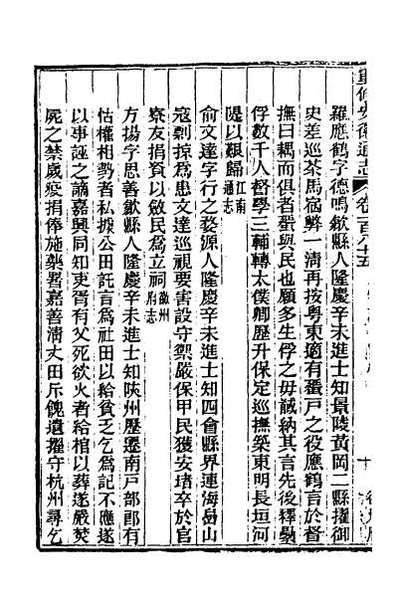 重修安徽通志 卷一百八十五
羅應鶴字德鳴歙縣人隆慶辛未進士知景陵黃岡二縣擢御
史差巡茶馬宿弊一清再按粵東適有蜑戶之役應鶴言於督
撫曰耦而俱者蜑與民也願多生俘之毋誠納其言先後釋纍
俘數千人督學三輔轉太僕卿歷升保定巡撫築東明長垣河
隄以艱歸江南通志
俞文達字行之婺源人隆慶辛未進士知四會縣界連海嵒山
寇剽掠為患文達巡視要害設守禦嚴保甲民獲安堵卒於官
寮友捐貲以斂民為立祠徽州府志
方揚字思善歙縣人隆慶辛未進士知陝州歷遷南戶部郎有
怙權相勢者私據公田託言為社田以給貧乏乞為記不應遂
以事誣之謫嘉興同知吏胥有父死欲火者給棺以葬遂嚴焚
屍之禁歲疫捐俸施藥署嘉善清丈田斥餽遺擢守杭州尋乞